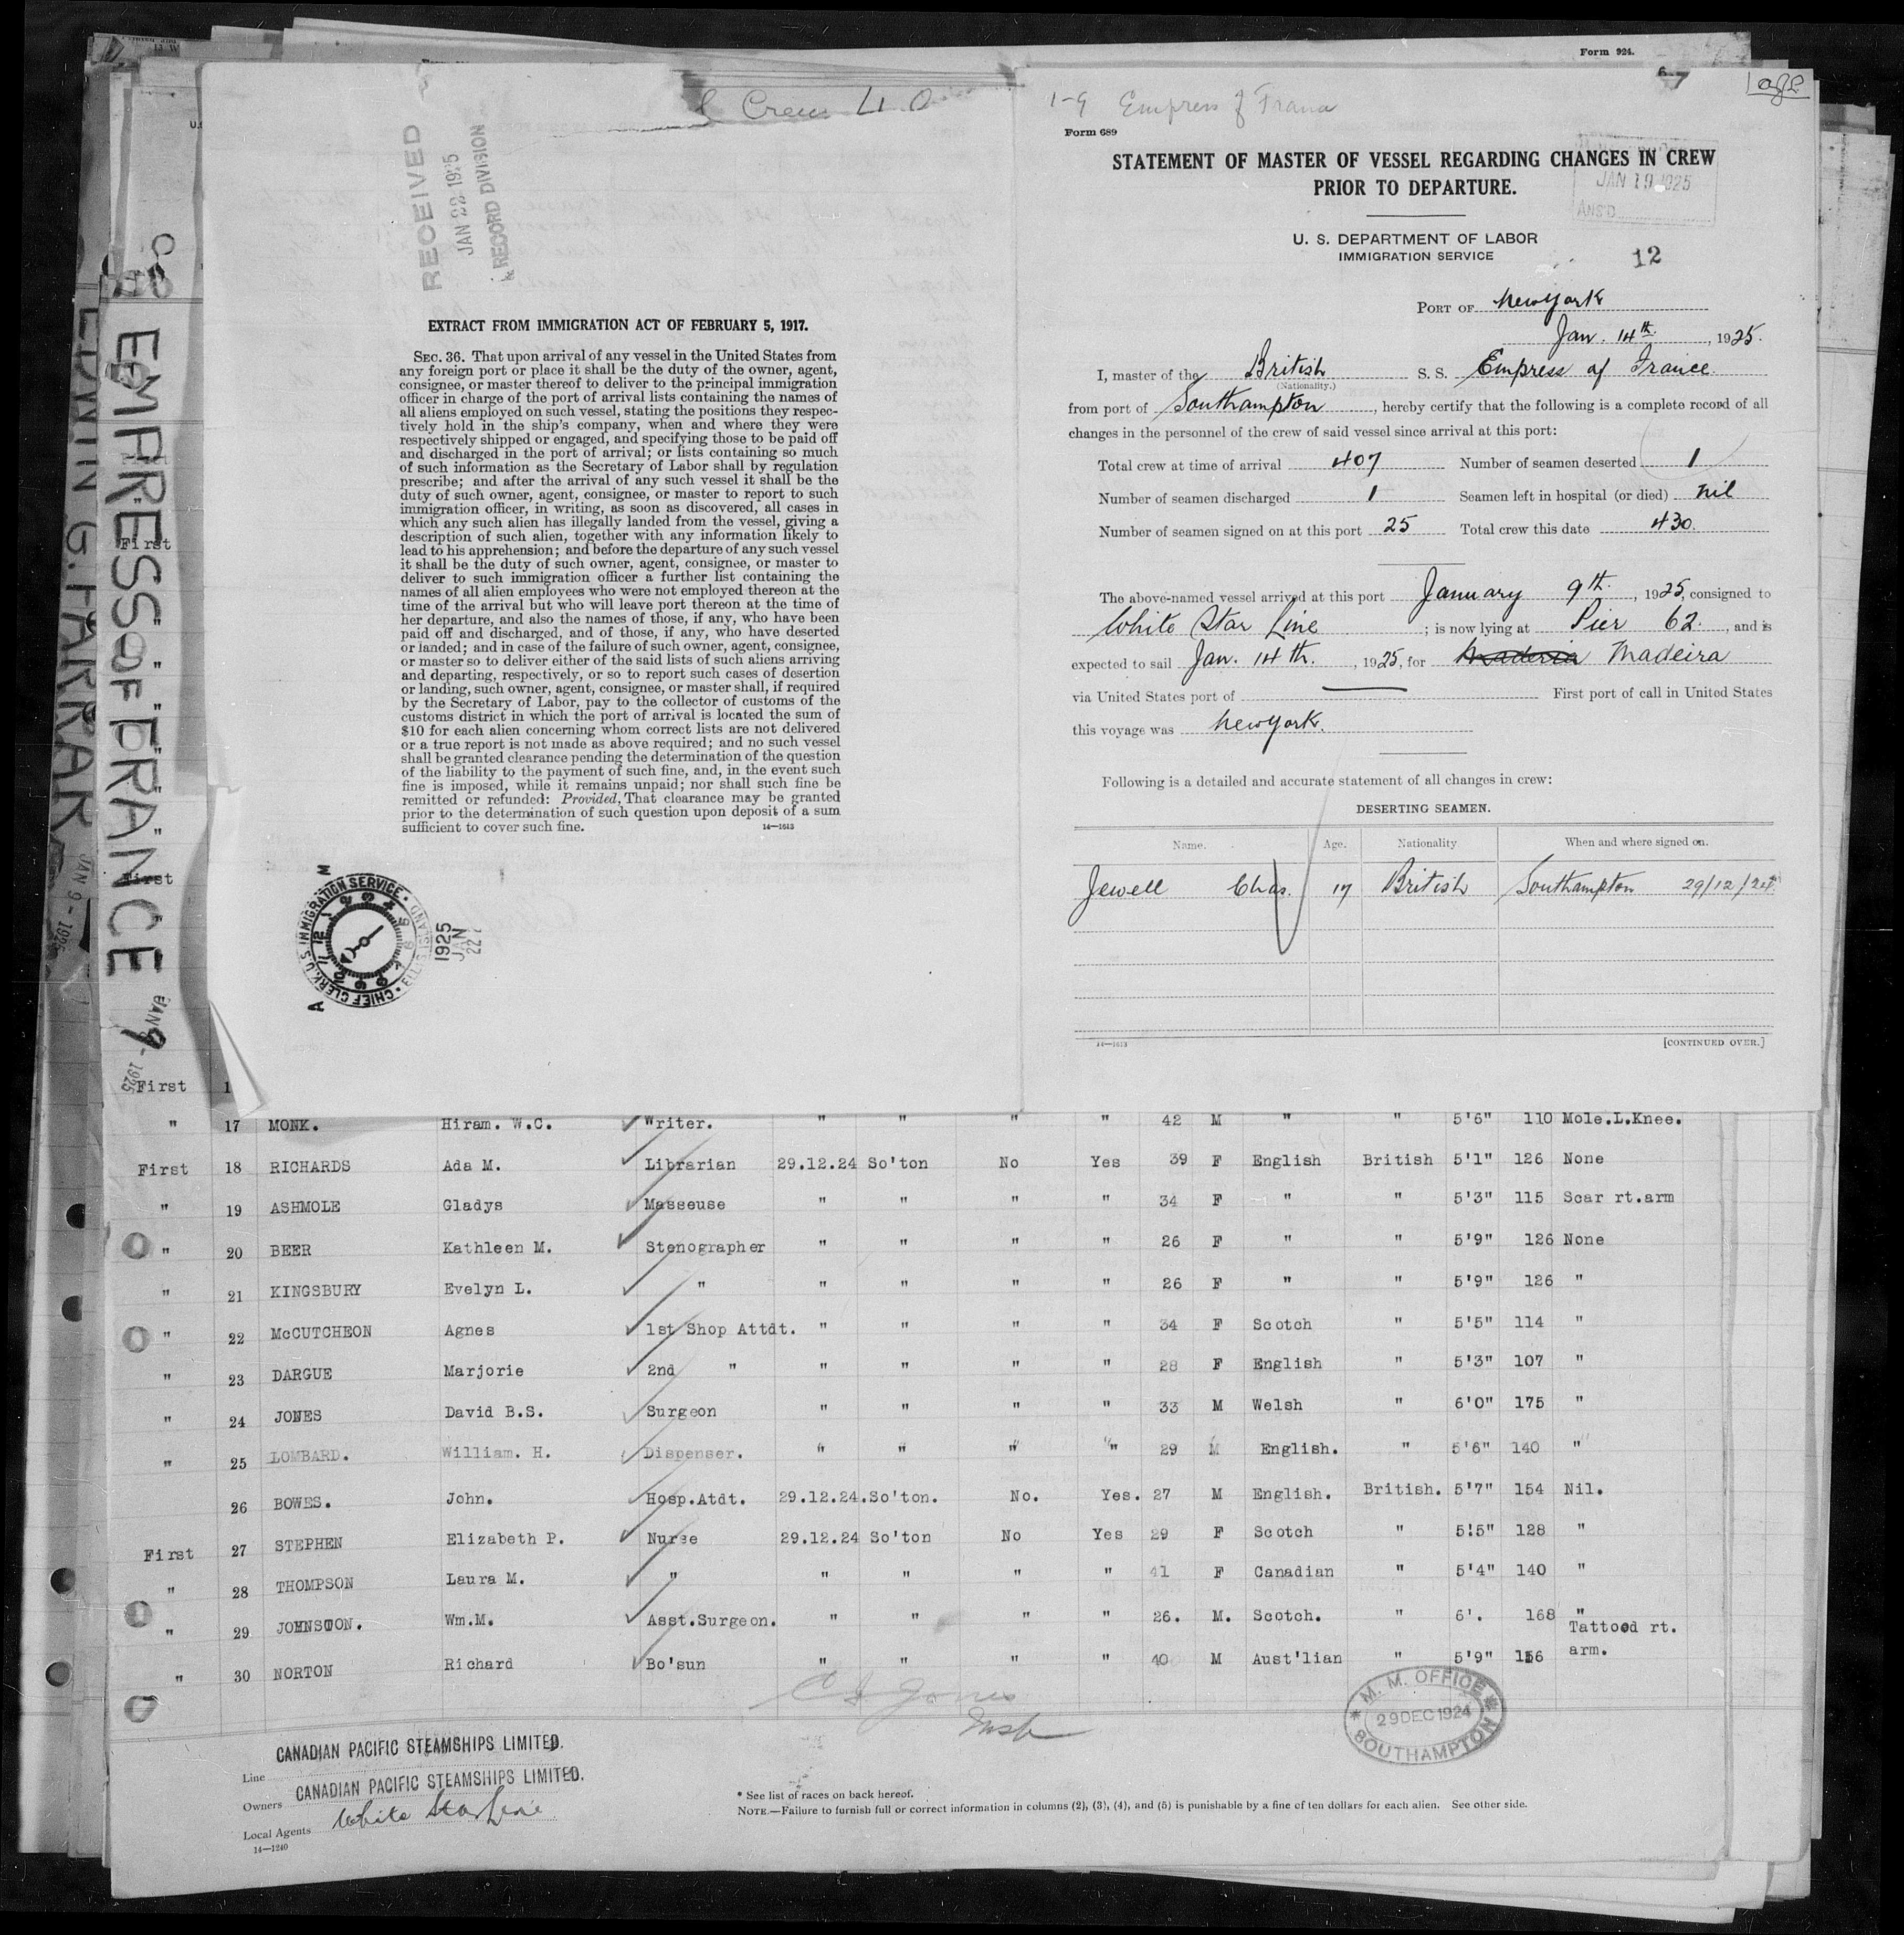 Form 924.
Crew
RECEIVED
JAN 22 1925
RECORD DIVISION
EXTRACT FROM IMMIGRATION ACT OF FEBRUARY 5, 1917.
SEC. 36. That upon arrival of any vessel in the United States from
any foreign port or place it shall be the duty of the owner, agent,
consignee, or master thereof to deliver to the principal immigration
officer in charge of the port of arrival lists containing the names of
all aliens employed on such vessel, stating the positions they respec-
tively hold in the ship's company, when and where they were
respectively shipped or engaged, and specifying those to be paid off
and discharged in the port of arrival; or lists containing so much
of such information as the Secretary of Labor shall by regulation
prescribe; and after the arrival of any such vessel it shall be the
duty of such owner, agent, consignee, or master to report to such
immigration officer, in writing, as soon as discovered, all cases in
which any such alien has illegally landed from the vessel, giving a
description of such alien, together with any information likely to
lead to his apprehension; and before the departure of any such vessel
it shall be the duty of such owner, agent, consignee, or master to
deliver to such immigration officer a further list containing the
names of all alien employees who were not employed thereon at the
time of the arrival but who will leave port thereon at the time of
her departure, and also the names of those, if any, who have been
paid off and discharged, and of those, if any, who have deserted
or landed; and in case of the failure of such owner, agent, consignee,
or master so to deliver either of the said lists of such aliens arriving
and departing, respectively, or so to report such cases of desertion
or landing, such owner, agent, consignee, or master shall, if required
by the Secretary of Labor, pay to the collector of customs of the
customs district in which the port of arrival is located the sum of
$10 for each alien concerning whom correct lists are not delivered
or a true report is not made as above required; and no such vessel
shall be granted clearance pending the determination of the question
of the liability to the payment of such fine, and, in the event such
fine is imposed, while it remains unpaid; nor shall such fine be
remitted or refunded: Provided, That clearance may be granted
prior to the determination of such question upon deposit of a sum
sufficient to cover such fine. 14—1613
CHIEF CLERK, U.S. IMMIGRATION SERVICE. ELLIS ISLAND
1925
JAN
22
1-9 Empress of France
Form 689
STATEMENT OF MASTER OF VESSEL REGARDING CHANGES IN CREW
PRIOR TO DEPARTURE.
JAN 19 1925
ANS'D
U. S. DEPARTMENT OF LABOR
IMMIGRATION SERVICE
12
PORT OF New York
Jan. 14th, 1925.
I, master of the British S. S. Empress of France
(Nationality.)
from port of Southampton, hereby certify that the following is a complete record of all
changes in the personnel of the crew of said vessel since arrival at this port:
Total crew at time of arrival 407 Number of seamen deserted 1
Number of seamen discharged 1 Seamen left in hospital (or died) nil
Number of seamen signed on at this port 25 Total crew this date 430.
The above-named vessel arrived at this port January 9th, 1925, consigned to
White Star Line; is now lying at Pier 62, and is
expected to sail Jan. 14th., 1925, for Maderia Madeira
via United States port of — First port of call in United States
this voyage was New York.
Following is a detailed and accurate statement of all changes in crew:
DESERTING SEAMEN.
Name. Age. Nationality When and where signed on.
Jewell Chas. 17 British Southampton 29/12/24
14—1613 [CONTINUED OVER.]
EDWIN G. FARRAR JAN 9 - 1925
EMPRESS OF FRANCE JAN 9 - 1925
First
First
First 1
" 17 MONK. Hiram. W.C. Writer. " " " " 42 M " " 5'6" 110 Mole.L.Knee.
First 18 RICHARDS Ada M. Librarian 29.12.24 So'ton No Yes 39 F English British 5'1" 126 None
" 19 ASHMOLE Gladys Masseuse " " " " 34 F " " 5'3" 115 Scar rt.arm
" 20 BEER Kathleen M. Stenographer " " " " 26 F " " 5'9" 126 None
" 21 KINGSBURY Evelyn L. " " " " " 26 F " " 5'9" 126 "
" 22 McCUTCHEON Agnes 1st Shop Attdt. " " " " 34 F Scotch " 5'5" 114 "
" 23 DARGUE Marjorie 2nd " " " " " 28 F English " 5'3" 107 "
" 24 JONES David B.S. Surgeon " " " " 33 M Welsh " 6'0" 175 "
" 25 LOMBARD. William. H. Dispenser. " " " " 29 M English. " 5'6" 140 "
26 BOWES. John. Hosp.Atdt. 29.12.24. So'ton. No. Yes. 27 M English. British. 5'7" 154 Nil.
First 27 STEPHEN Elizabeth P. Nurse 29.12.24 So'ton No Yes 29 F Scotch " 5!5" 128 "
" 28 THOMPSON Laura M. " " " " " 41 F Canadian " 5'4" 140 "
" 29 JOHNSTON. Wm.M. Asst.Surgeon. " " " " 26. M. Scotch. " 6'. 168 "
" 30 NORTON Richard Bo'sun " " " " 40 M Aust'lian " 5'9" 156 Tattood rt.
arm.
M. M. OFFICE
29 DEC 1924
SOUTHAMPTON
Line CANADIAN PACIFIC STEAMSHIPS LIMITED.
Owners CANADIAN PACIFIC STEAMSHIPS LIMITED.
Local Agents White Star Line
14—1240
* See list of races on back hereof.
NOTE.—Failure to furnish full or correct information in columns (2), (3), (4), and (5) is punishable by a fine of ten dollars for each alien. See other side.